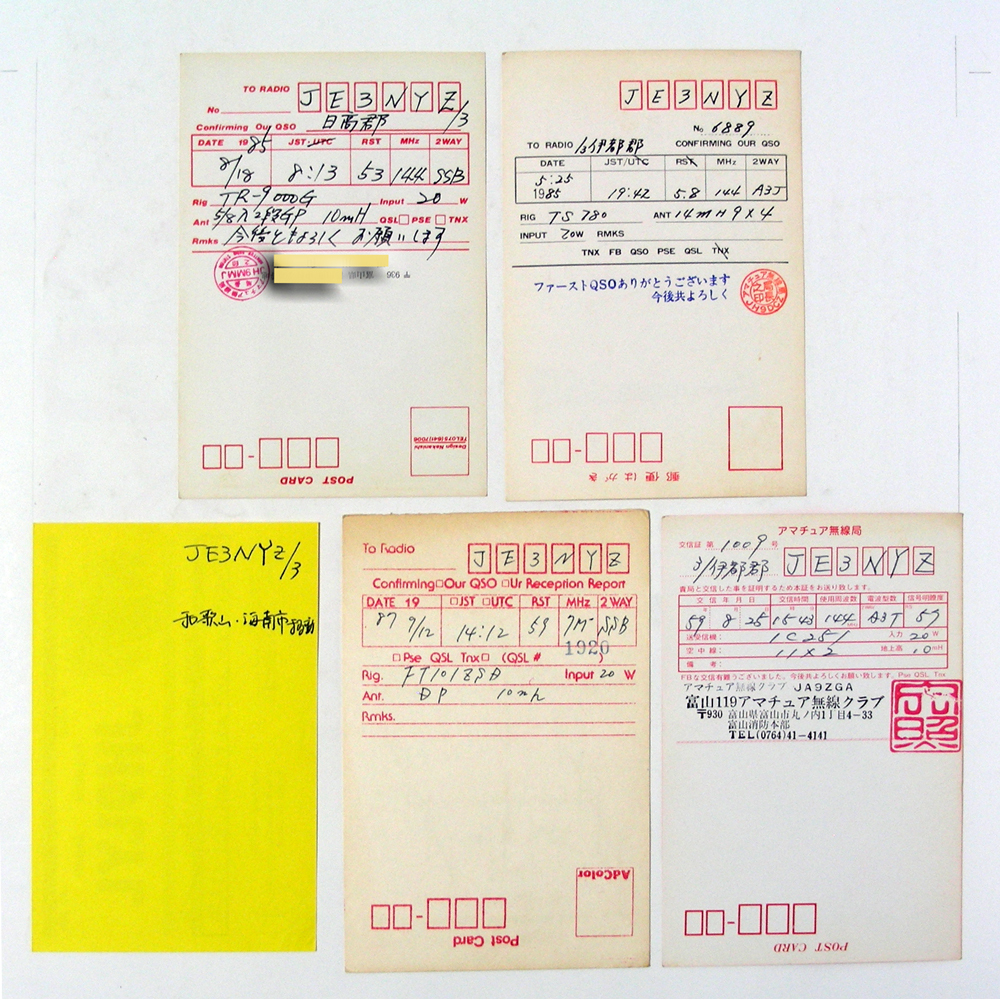 TO RADIO JE3NYZ/3
No
Confirming Our QSO 日高郡
DATE 1985 JST·UTC RST MHz 2WAY
8/18 8:13 53 144 SSB
Rig TR-9000G Input 20 W
Ant 5/8λ2段GP 10mH QSL□ PSE □ TNX
Rmks 今後ともよろしく お願いします
JH9MMJ
〒 936 富山県
Design Nakanishi
TEL0731841/7006
POST CARD
JE3NYZ
No 6889
TO RADIO /3伊都郡 CONFIRMING OUR QSO
DATE JST/UTC RST MHz 2WAY
5.25
1985 19:42 5.8 144 A3J
RIG TS 780 ANT 14mH 9x4
INPUT 20W RMKS
TNX FB QSO PSE QSL TNX
ファーストQSOありがとうございます
今後共よろしく
郵便はがき
JE3NYZ/3
和歌山・海南市移動
To Radio JE3NYZ
Confirming□Our QSO □Ur Reception Report
DATE 19 □JST □UTC RST MHz 2WAY
87 9/12 14:12 59 7M- SSB
□Pse QSL Tnx□ (QSL # 1920 )
Rig. FT101ZSD Input 20 W
Ant. DP 10mh
Rmks.
AdColor
Post Card
アマチュア無線局
交信証 第 1009 号
3/伊都郡 JE3NYZ
貴局と交信した事を証明するため本証をお送り致します。
交信年月日 交信時間 使用周波数 電波型数 信号明瞭度
59 8 25 15 43 144 A3J 59
送受信機: IC251 入力 20 W
空中線: 11x2 地上高 10 mH
備者:
FBな交信有難うございました。今後共よろしくお願い致します。Pse QSL. Tnx
アマチュア無線クラブ JA9ZGA
富山119アマチュア無線クラブ
〒930 富山県富山市丸ノ内1丁目4-33
富山消防本部
TEL(0764)41-4141
POST CARD